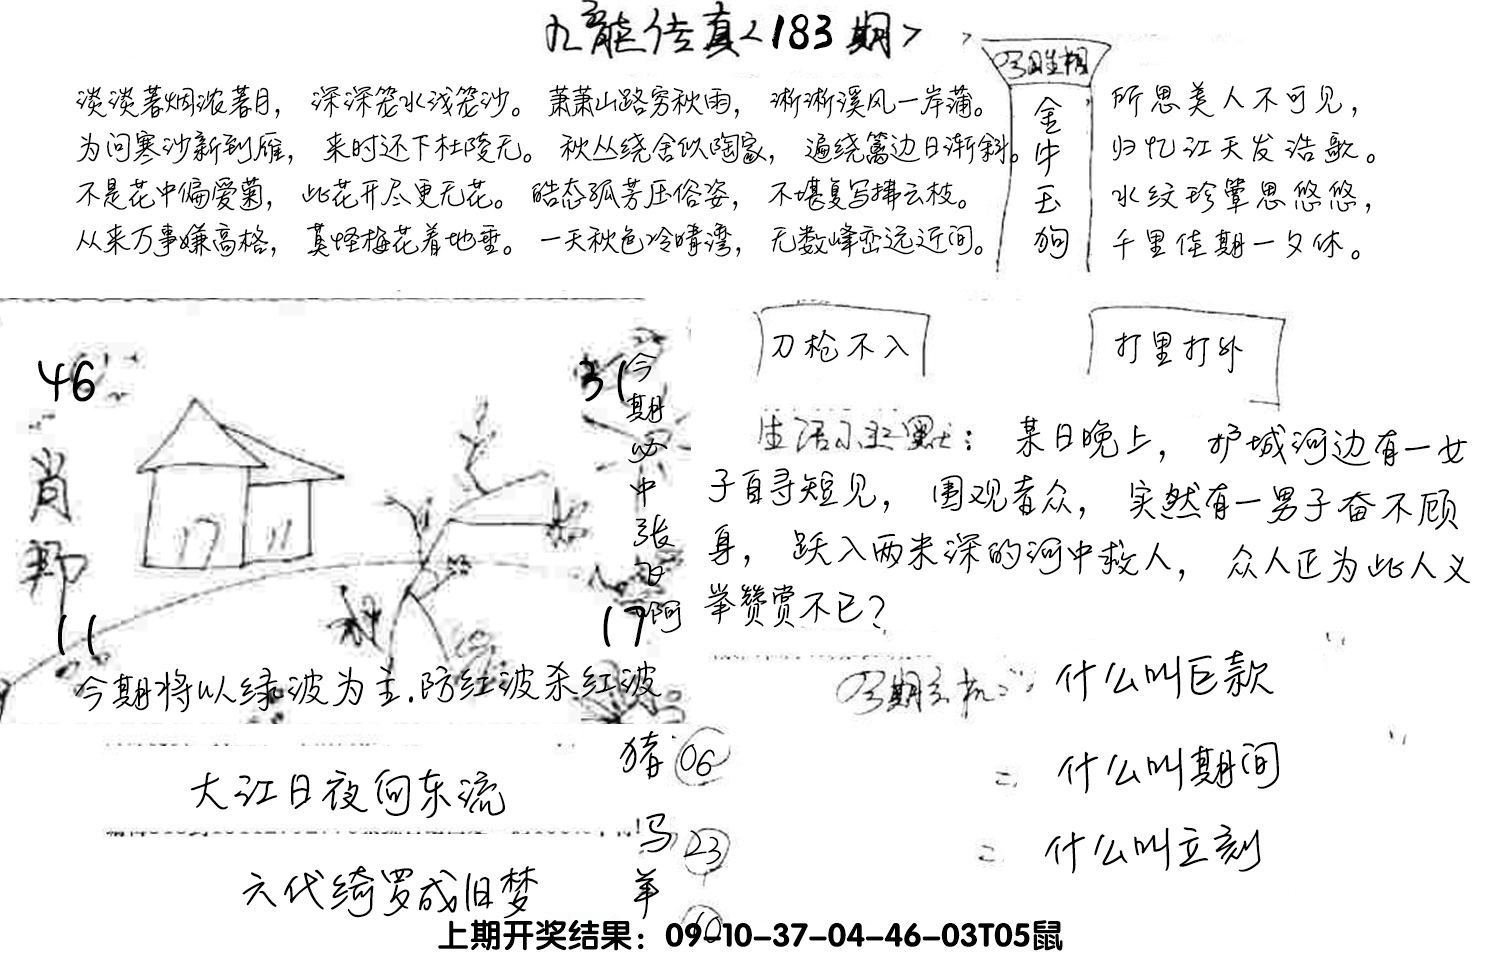 九龙传真<183期>
今期生相
金牛玉狗
淡淡著烟浓著月，深深笼水浅笼沙。萧萧山路穷秋雨，淅淅溪风一岸蒲。
为问寒沙新到雁，来时还下杜陵无。秋丛绕舍似陶家，遍绕篱边日渐斜。
不是花中偏爱菊，此花开尽更无花。皓态孤芳压俗姿，不堪复写拂云枝。
从来万事嫌高格，莫怪梅花着地垂。一天秋色冷晴湾，无数峰峦远近间。
所思美人不可见，
归忆江天发浩歌。
水纹珍簟思悠悠，
千里佳期一夕休。
46
31
肖
11
17
今期必中张飞啊
今期将以绿波为主.防红波杀红波
刀枪不入
打里打外
生活小幽默：某日晚上，护城河边有一女
子自寻短见，围观者众，突然有一男子奋不顾
身，跃入两米深的河中救人，众人正为此人义
举赞赏不已？
今期玄机：什么叫巨款
二 什么叫期间
二 什么叫立刻
大江日夜向东流
六代绮罗成旧梦
猪 06
马 23
羊 10
上期开奖结果：09-10-37-04-46-03T05鼠